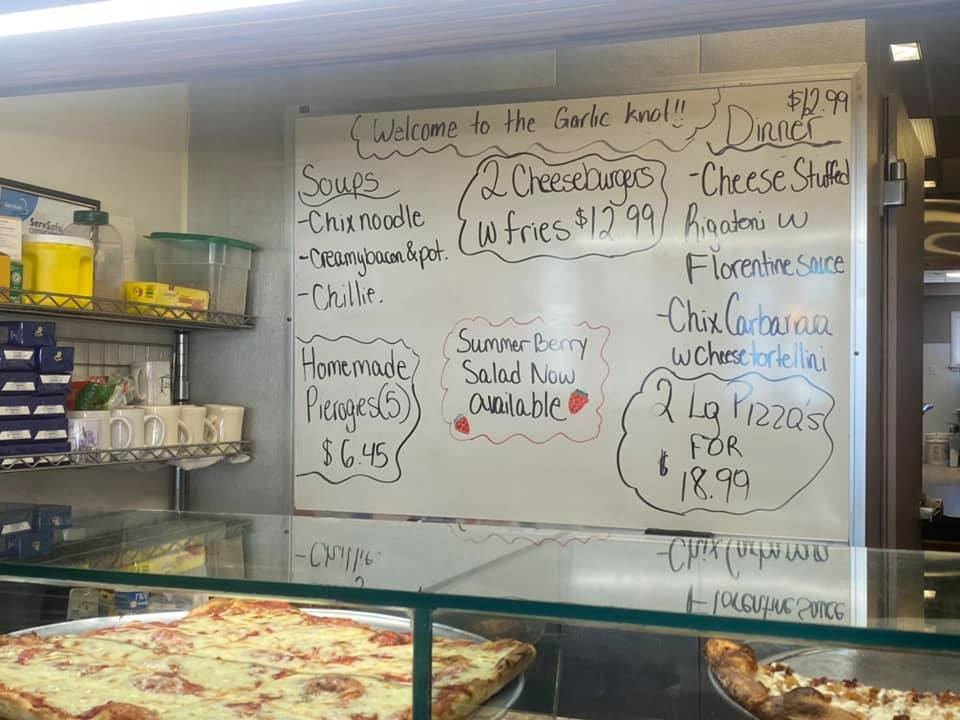 Welcome to the Garlic knot!!
Soups
-Chixnoodle
-Creamybacon&pot.
-Chillie.
2 Cheeseburgers
w fries $12.99
$12.99
Dinner
-Cheese Stuffed
Rigatoni w
Florentine sauce
-Chix Carbanara
w cheese tortellini
Homemade
Pierogies(5)
$6.45
Summer Berry
Salad Now
available
2 Lg Pizza's
FOR
$18.99
ServSafe